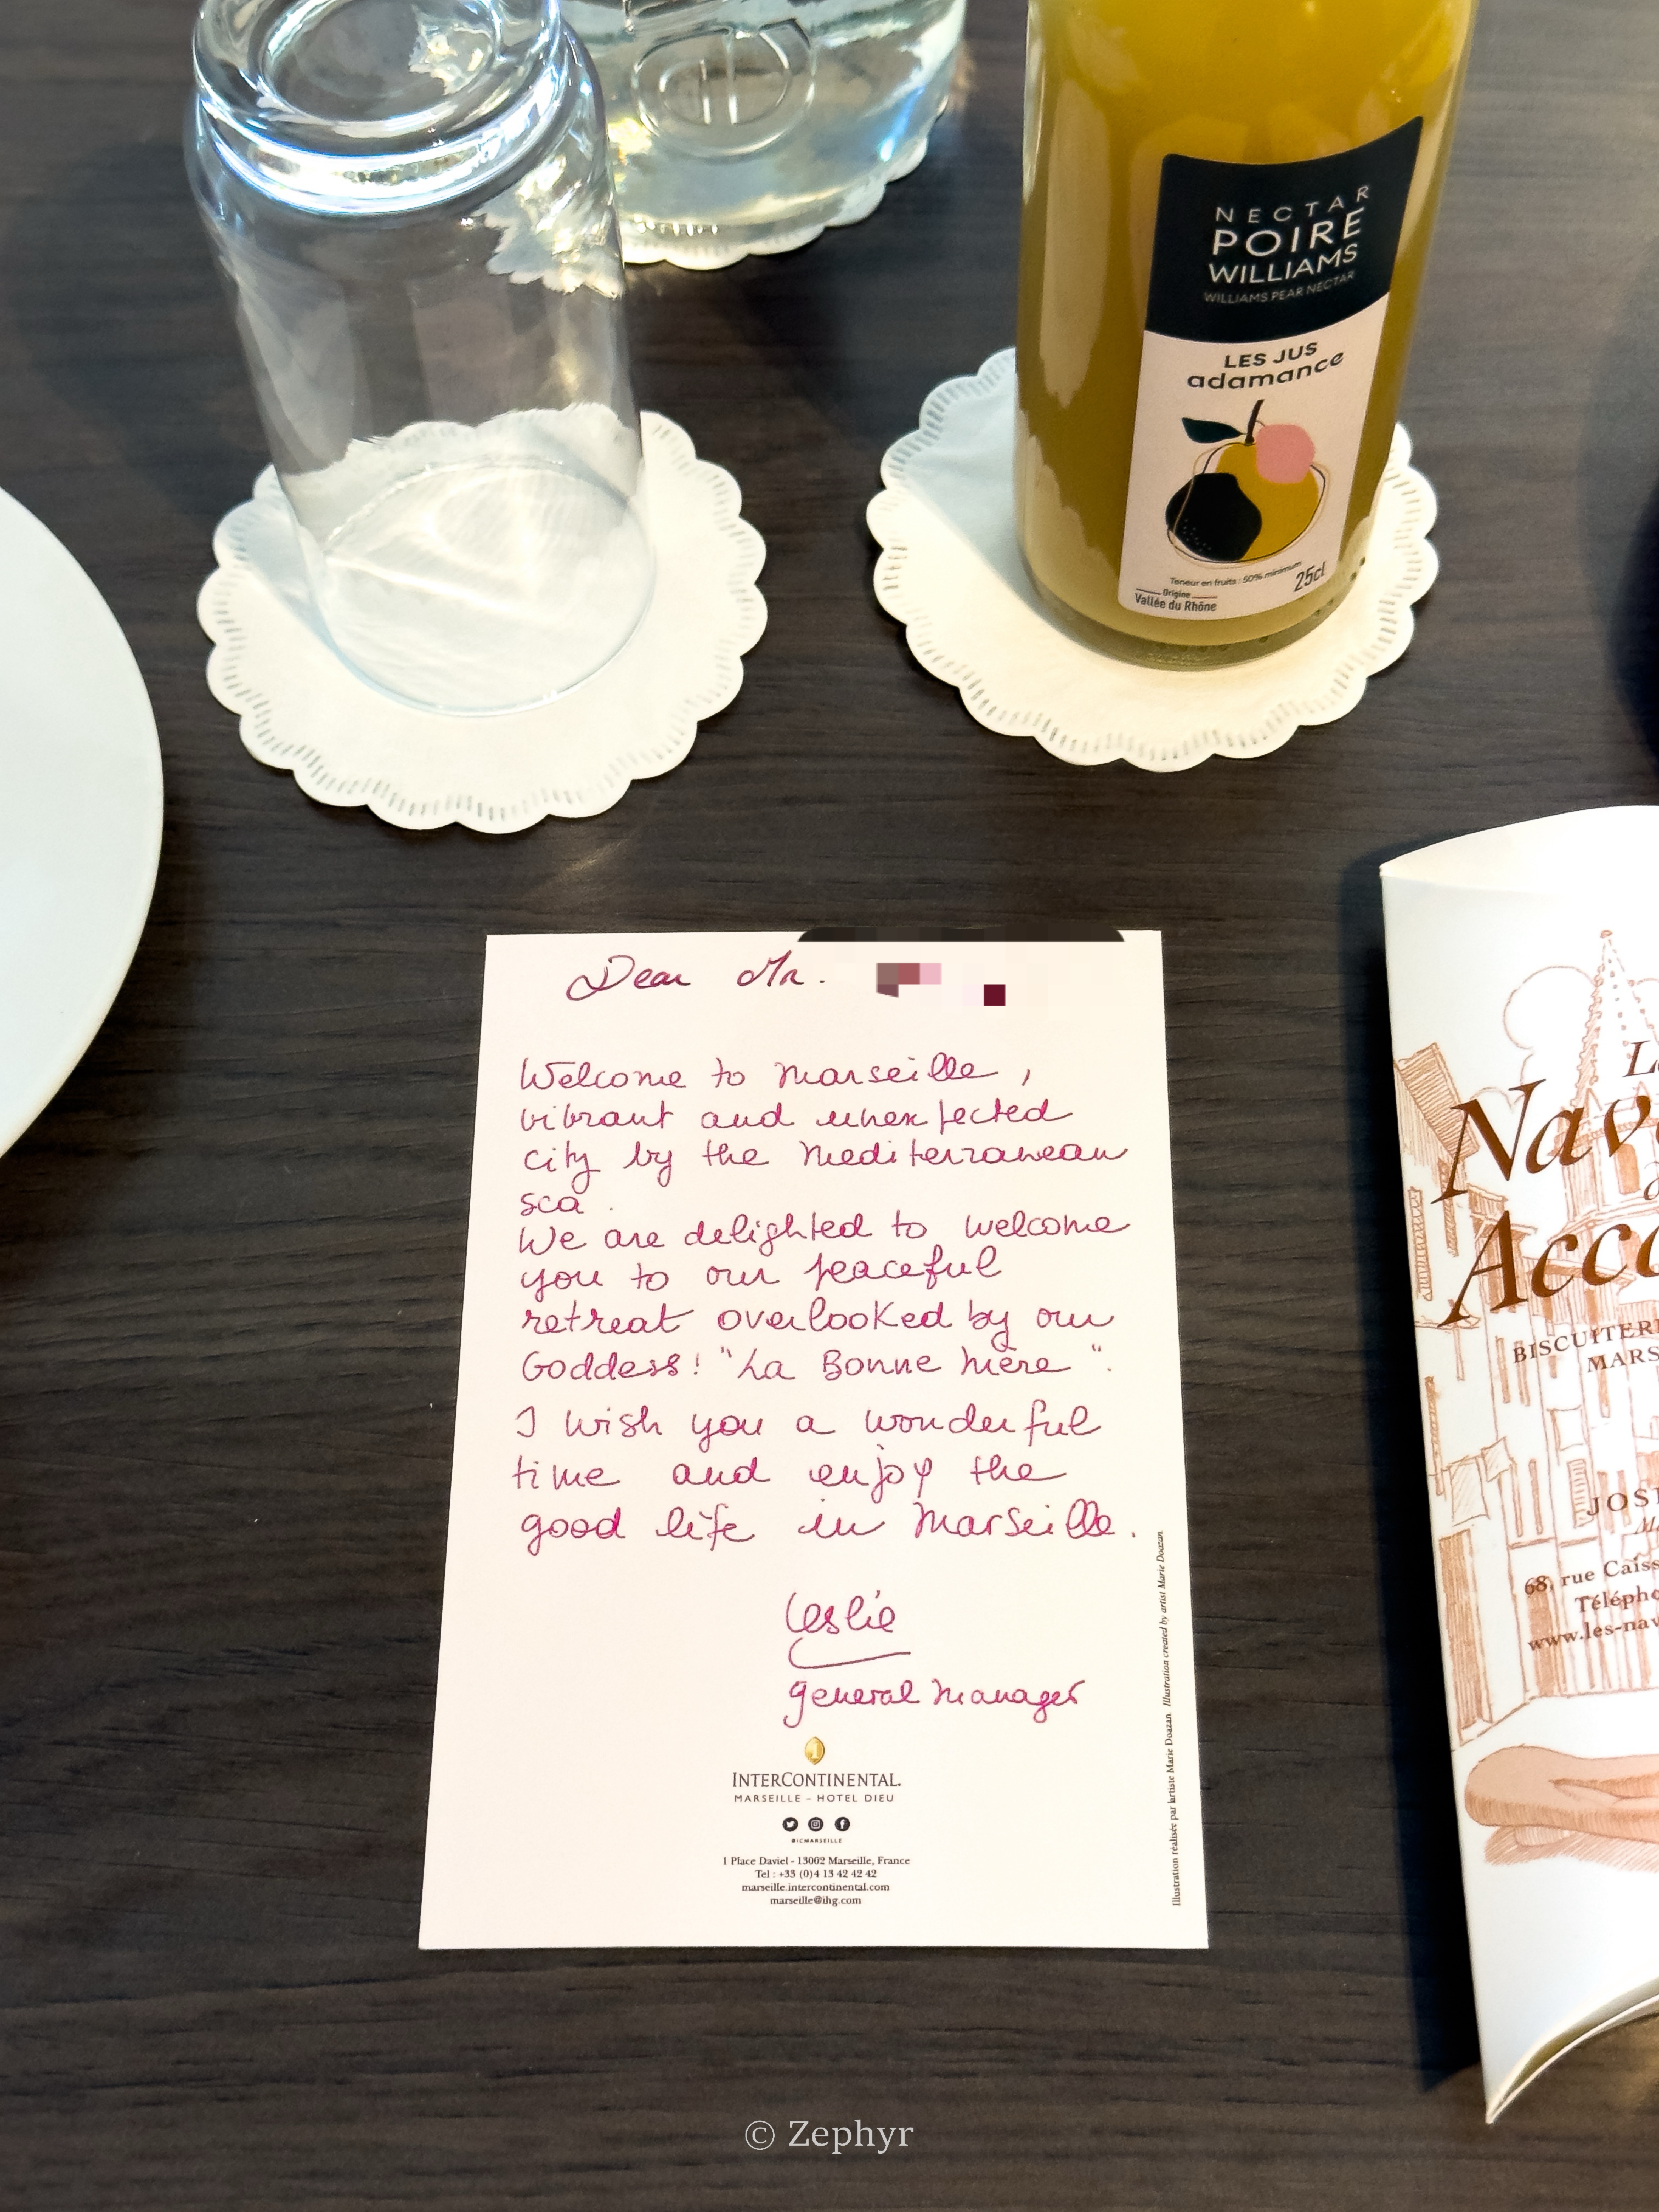 NECTAR
POIRE
WILLIAMS
WILLIAMS PEAR NECTAR
LES JUS
adamance
Teneur en fruits : 50% minimum
25cl
Origine
Vallée du Rhône
Dear Mr.
Welcome to Marseille,
vibrant and unexpected
city by the Mediterranean
sea.
We are delighted to welcome
you to our peaceful
retreat overlooked by our
Goddess! "La Bonne Mère".
I wish you a wonderful
time and enjoy the
good life in Marseille.
Leslie
General Manager
INTERCONTINENTAL.
MARSEILLE - HOTEL DIEU
@ICMARSEILLE
1 Place Daviel - 13002 Marseille, France
Tel : +33 (0)4 13 42 42 42
marseille.intercontinental.com
marseille@ihg.com
Illustration réalisée par l'artiste Marie Doazan. Illustration created by artist Marie Doazan.
Nav
Acco
BISCUITER
MARS
JOS
68, rue Caiss
Télépho
www.les-nav
© Zephyr